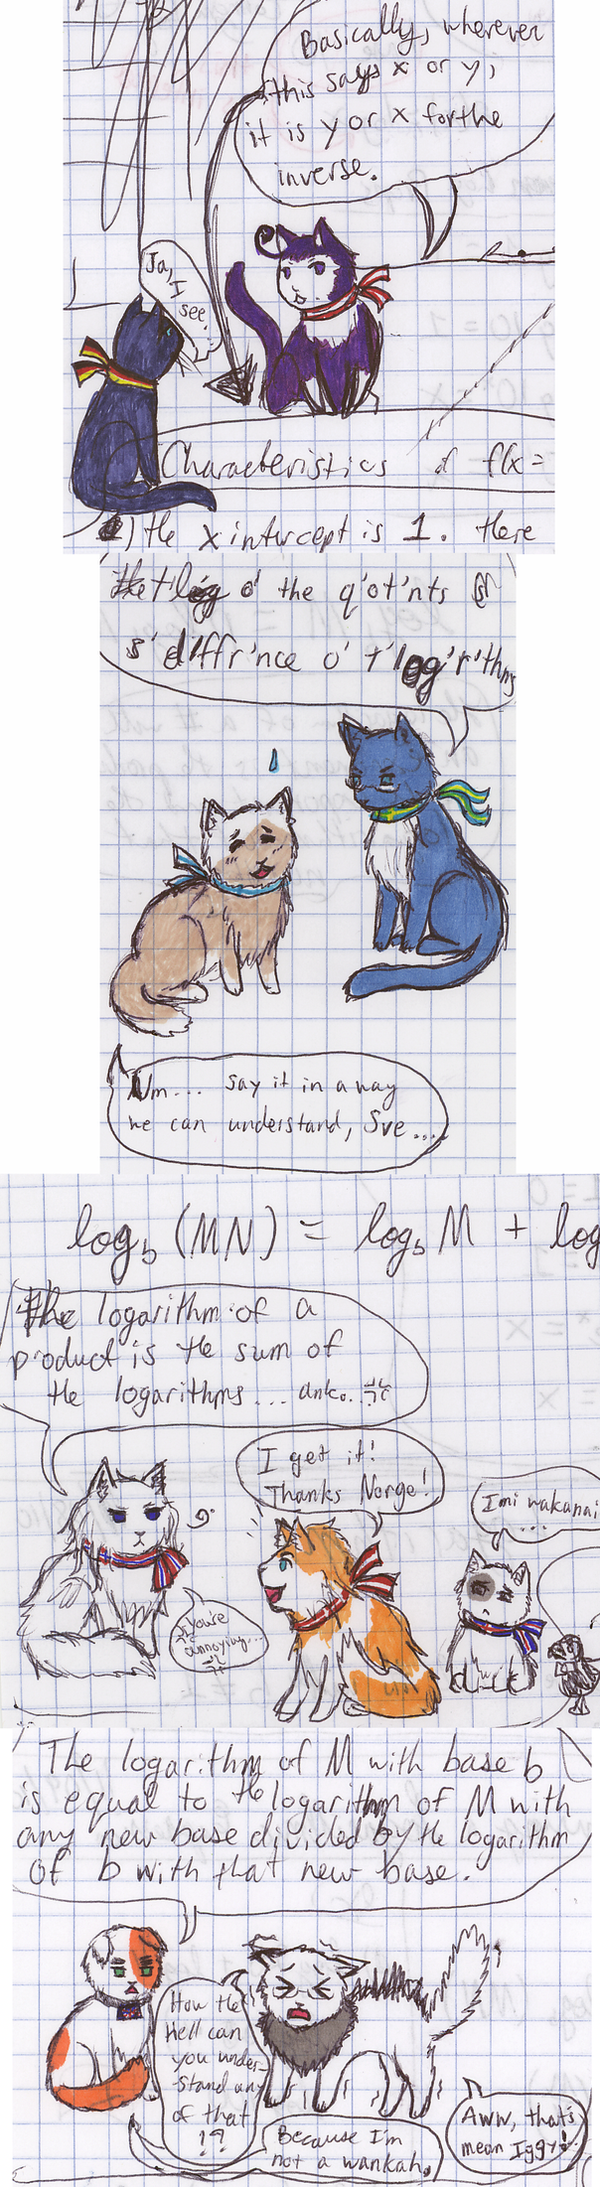 Basically, wherever
this says x or y,
it is y or x for the
inverse.
Ja, I
see.
Characteristics of f(x) =
the x intercept is 1. there
o' the q'ot'nts
s' diffr'nce o' t' log'r'thms
Um... say it in a way
we can understand, Sve...
log_b (MN) = log_b M + log
The logarithm of a
product is the sum of
the logarithms... anko.
I get it!
Thanks Norge!
Imi wakanai
...
You're
annoying...
The logarithm of M with base b
is equal to the logarithm of M with
any new base divided by the logarithm
of b with that new base.
How the
Hell can
you under-
stand any
of that
!?
Because I'm
not a wankah.
Aww, that's
mean Iggy!